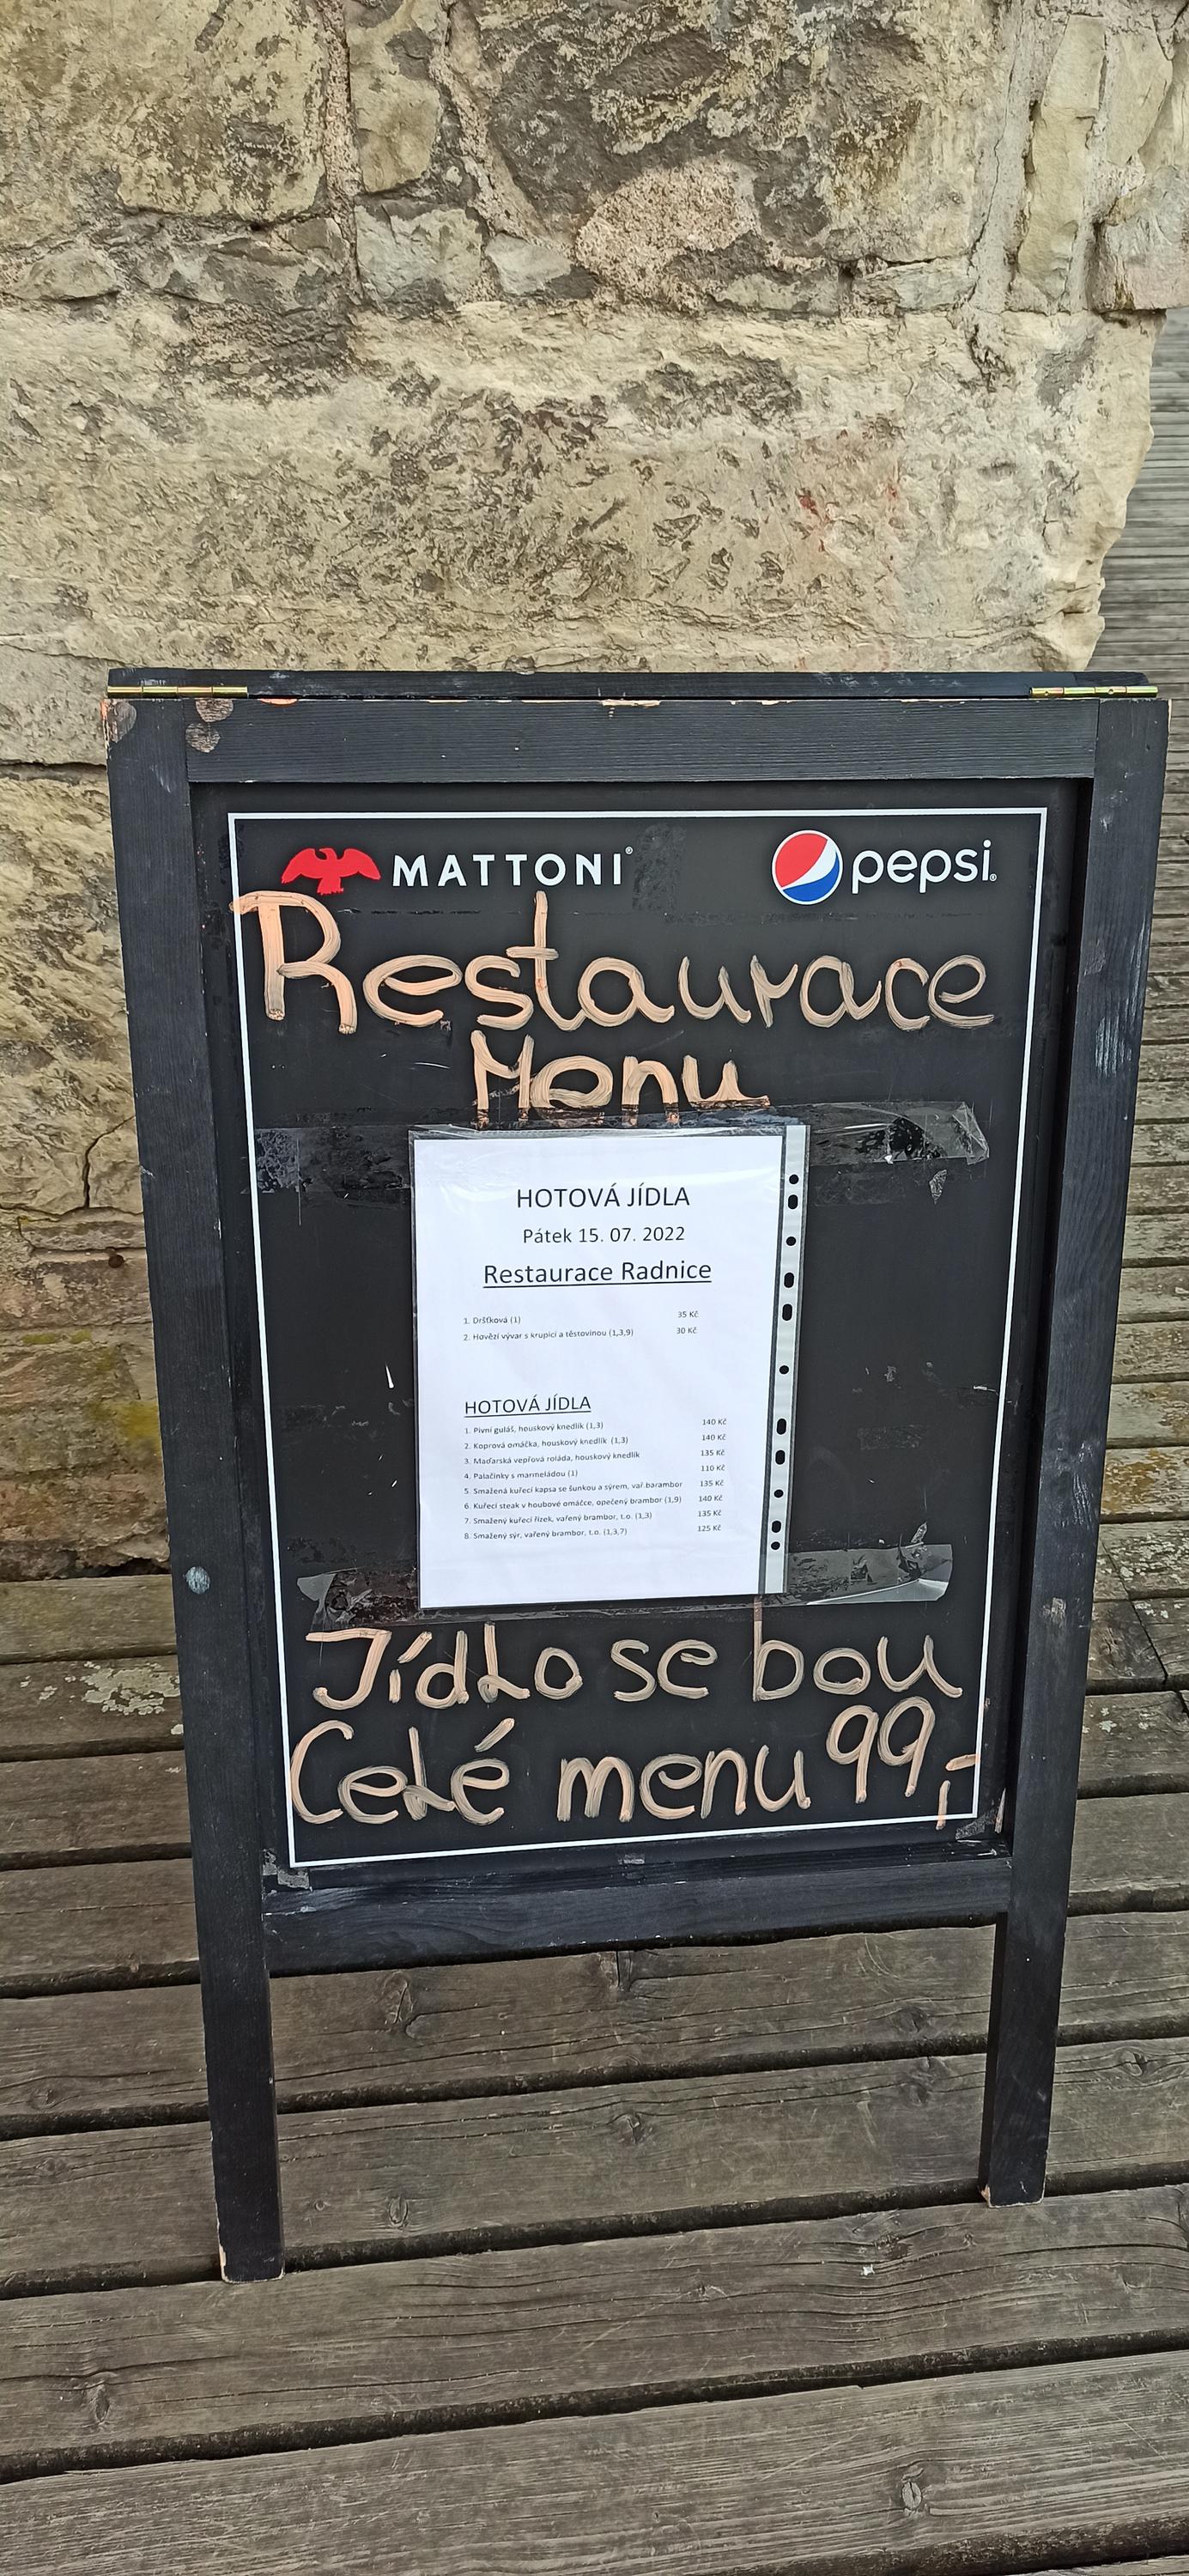 MATTONI® pepsi®
Restaurace
Menu
HOTOVÁ JÍDLA
Pátek 15. 07. 2022
Restaurace Radnice
1. Dršťková (1) 35 Kč
2. Hovězí vývar s krupicí a těstovinou (1,3,9) 30 Kč
HOTOVÁ JÍDLA
1. Pivní guláš, houskový knedlík (1,3) 140 Kč
2. Koprová omáčka, houskový knedlík (1,3) 140 Kč
3. Maďarská vepřová roláda, houskový knedlík 135 Kč
4. Palačinky s marmeládou (1) 110 Kč
5. Smažená kuřecí kapsa se šunkou a sýrem, vař.barambor 135 Kč
6. Kuřecí steak v houbové omáčce, opečený brambor (1,9) 140 Kč
7. Smažený kuřecí řízek, vařený brambor, t.o. (1,3) 135 Kč
8. Smažený sýr, vařený brambor, t.o. (1,3,7) 125 Kč
Jídlo se bou
Celé menu 99,-